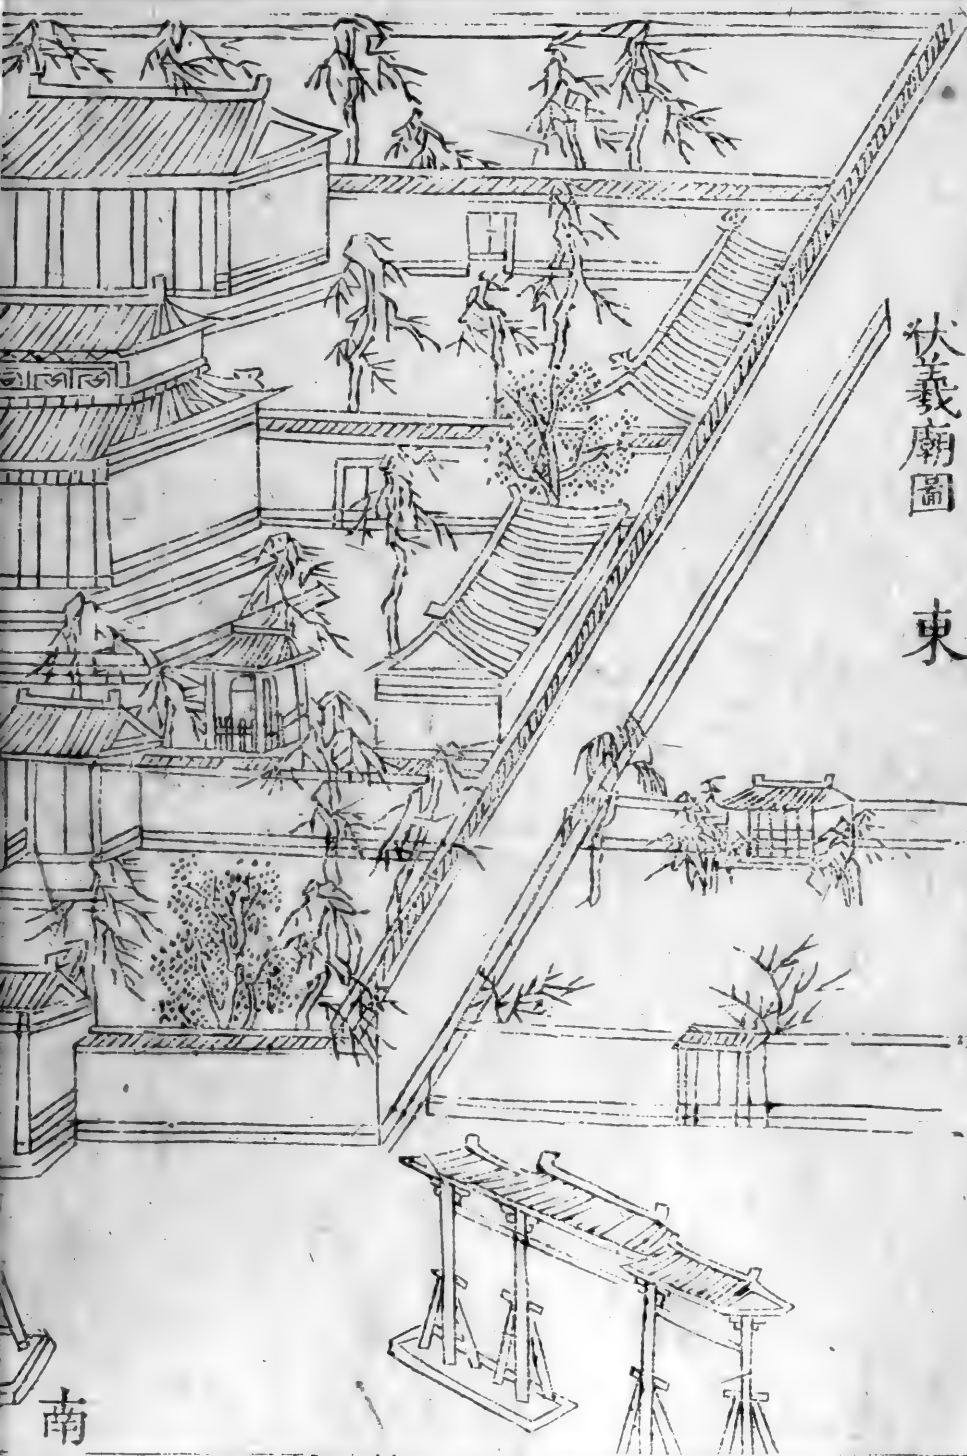 伏羲廟圖
東
南